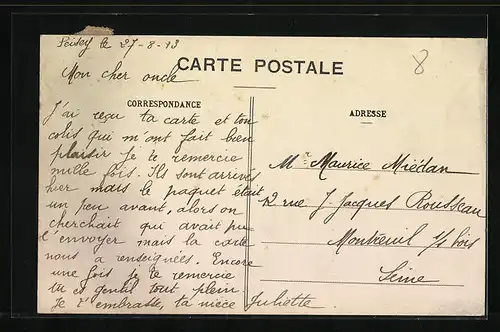 le 27-8-13
CARTE POSTALE
8
Mon cher oncle
CORRESPONDANCE
J'ai reçu ta carte et ton
colis qui m'ont fait bien
plaisir je te remercie
mille fois. Ils sont arrivés
hier mais le paquet était
un peu avant, alors on
cherchait qui avait pu
l'envoyer mais la carte
nous a renseignées. Encore
une fois je te remercie
tu es gentil tout plein.
Je t'embrasse, ta nièce Juliette
ADRESSE
Mr Maurice Miédan
12 rue J. Jacques Rousseau
Montreuil s/s bois
Seine